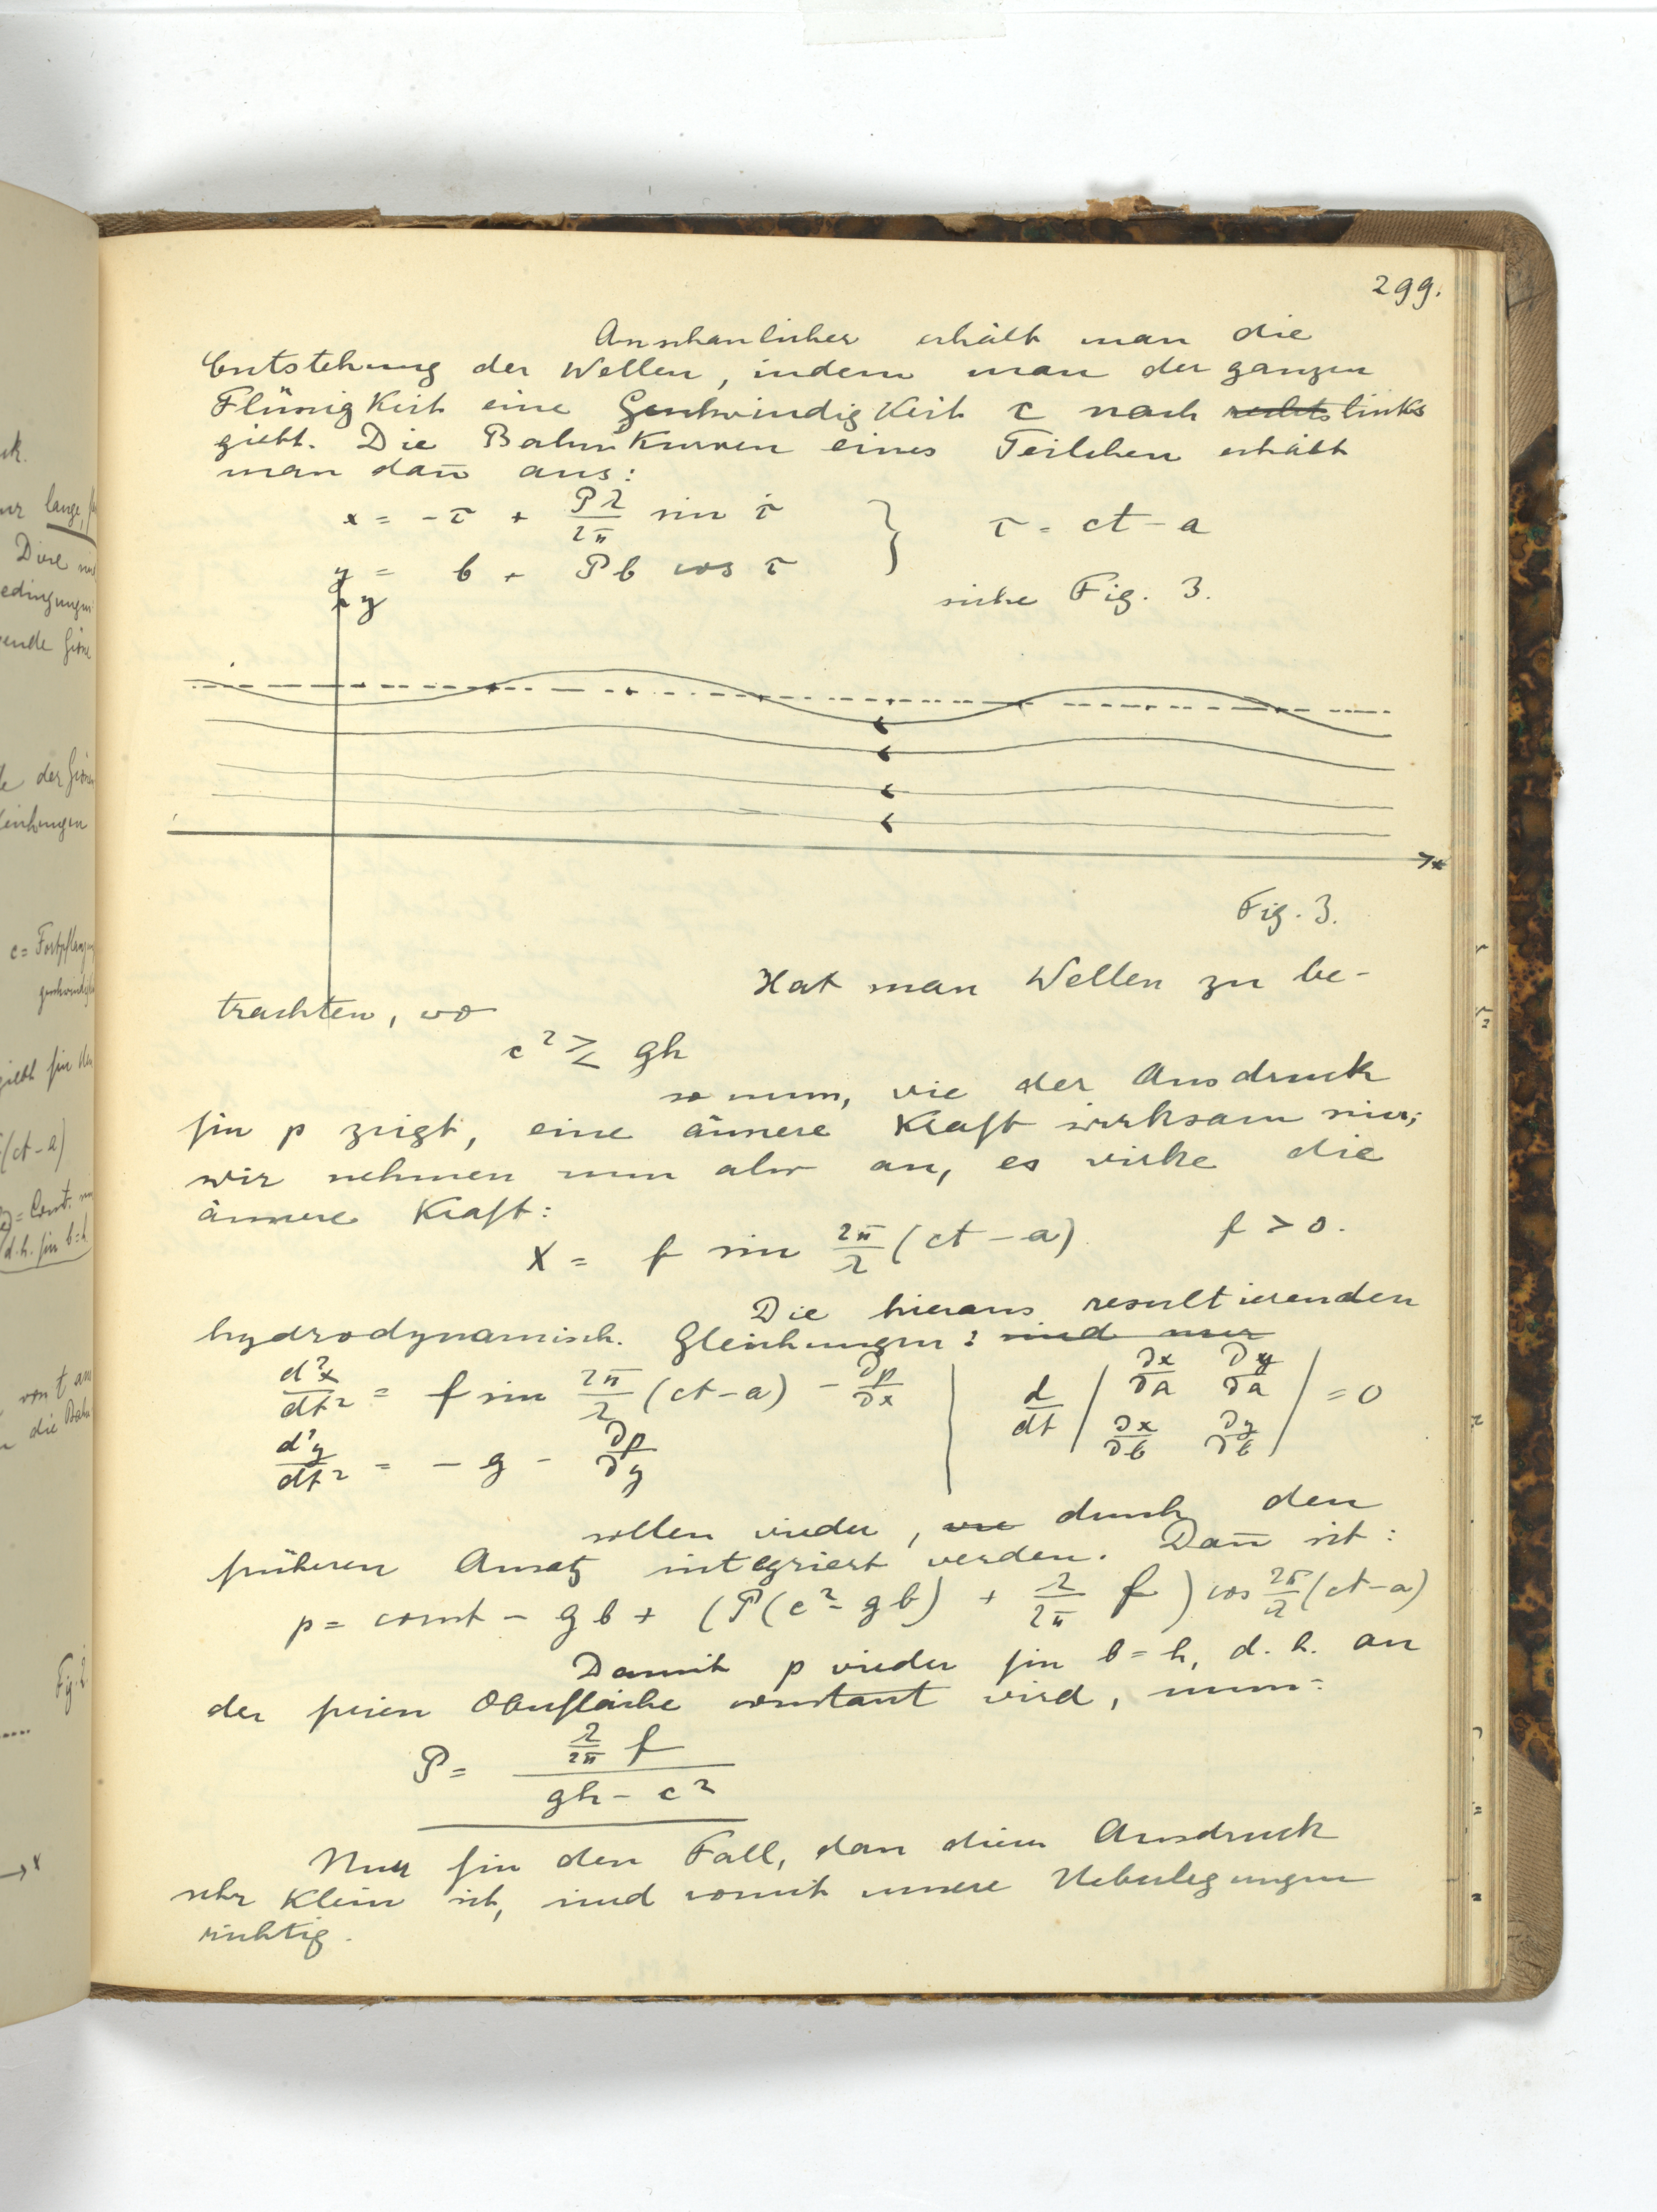 299.
Anschaulicher erhält man die
Entstehung der Wellen, indem man der ganzen
Flüssigkeit eine Geschwindigkeit c nach rechts links
giebt. Die Bahnkurven eines Teilchen erhält
man dan̄ aus:
x = -τ + Pλ/2π sin τ } τ = ct - a
y = b + Pb cos τ
siehe Fig. 3.
y
x
Fig. 3.
Hat man Wellen zu be-
trachten, wo
c² ≷ gh
so muss, wie der Ausdruck
für p zeigt, eine äussere Kraft wirksam sein;
wir nehmen nun also an, es wirke die
äussere Kraft:
X = f sin 2π/λ (ct - a) f > 0.
Die hieraus resultierenden
hydrodynamisch. Gleichungen: sind nur
d²x/dt² = f sin 2π/λ (ct - a) - ∂p/∂x | d/dt | ∂x/∂a ∂y/∂a | = 0
d²y/dt² = - g - ∂p/∂y | ∂x/∂b ∂y/∂b |
sollen wieder, wie durch den
früheren Ansatz integriert werden. Dan̄ ist:
p = const - gb + (P(c² - gb) + λ/2π f) cos 2π/λ (ct - a)
Damit p wieder für b = h, d.h. an
der freien Oberfläche constant wird, muss:
P = λ/2π f / gh - c²
Nur für den Fall, dass dieser Ausdruck
sehr klein ist, sind somit unsere Ueberlegungen
richtig.